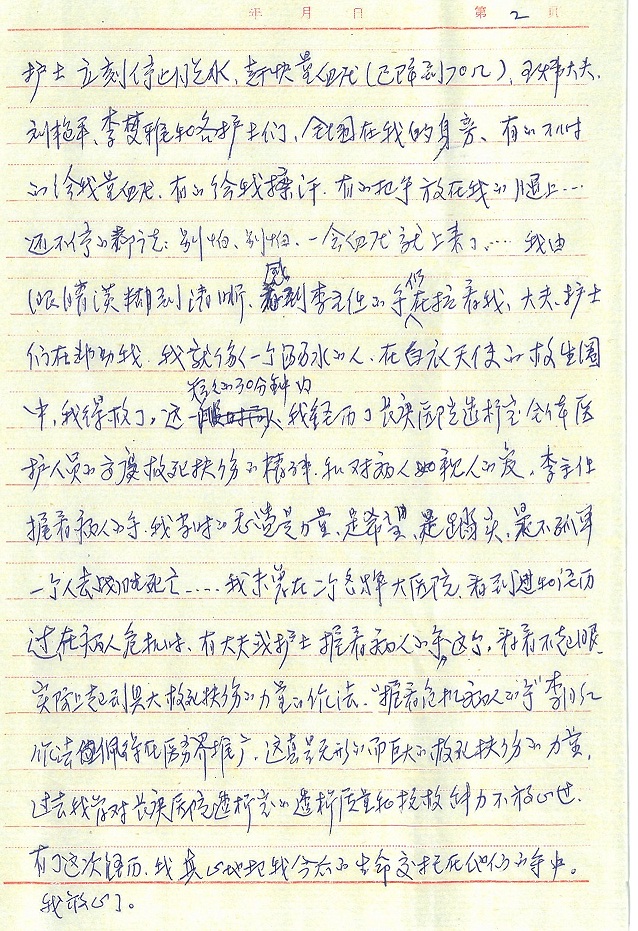 年 月 日 第 2 页
护士立刻停止脱水、赶快量血压(已降到70几)、大夫、
李梦雅和各护士们、全围在我的身旁、有的不时
的给我量血压、有的给我擦汗、有的把手放在我的腿上…
还不停的都说：别怕、别怕、一会血压就上来了…… 我由
眼睛模糊到清晰、感到李主任的手仍在拉着我、大夫、护士
们在帮助我、我就像一个溺水的人、在白衣天使的救生圈
中、我得救了、这短短的30分钟内、我经历了长庚医院透析室全体医
护人员的高度救死扶伤的精神、和对病人如亲人的爱、李主任
握着病人的手、我当时的感觉是力量、是希望、是踏实、是不孤单
一个人去死亡…… 我未曾在二个名牌大医院、看到过和经历
过在病人危机时、有大夫或护士握着病人的手这个、看着不起眼
实际上起到巨大救死扶伤的力量的作法、“握着危机病人的手”李
作法值得在医务界推广、这真是无形的而巨大的救死扶伤的力量、
过去我曾对长庚医院透析室的透析质量和抢救能力不放心过、
有了这次经历、我真心地把我今后的生命交托在他们的手中。
我放心了。